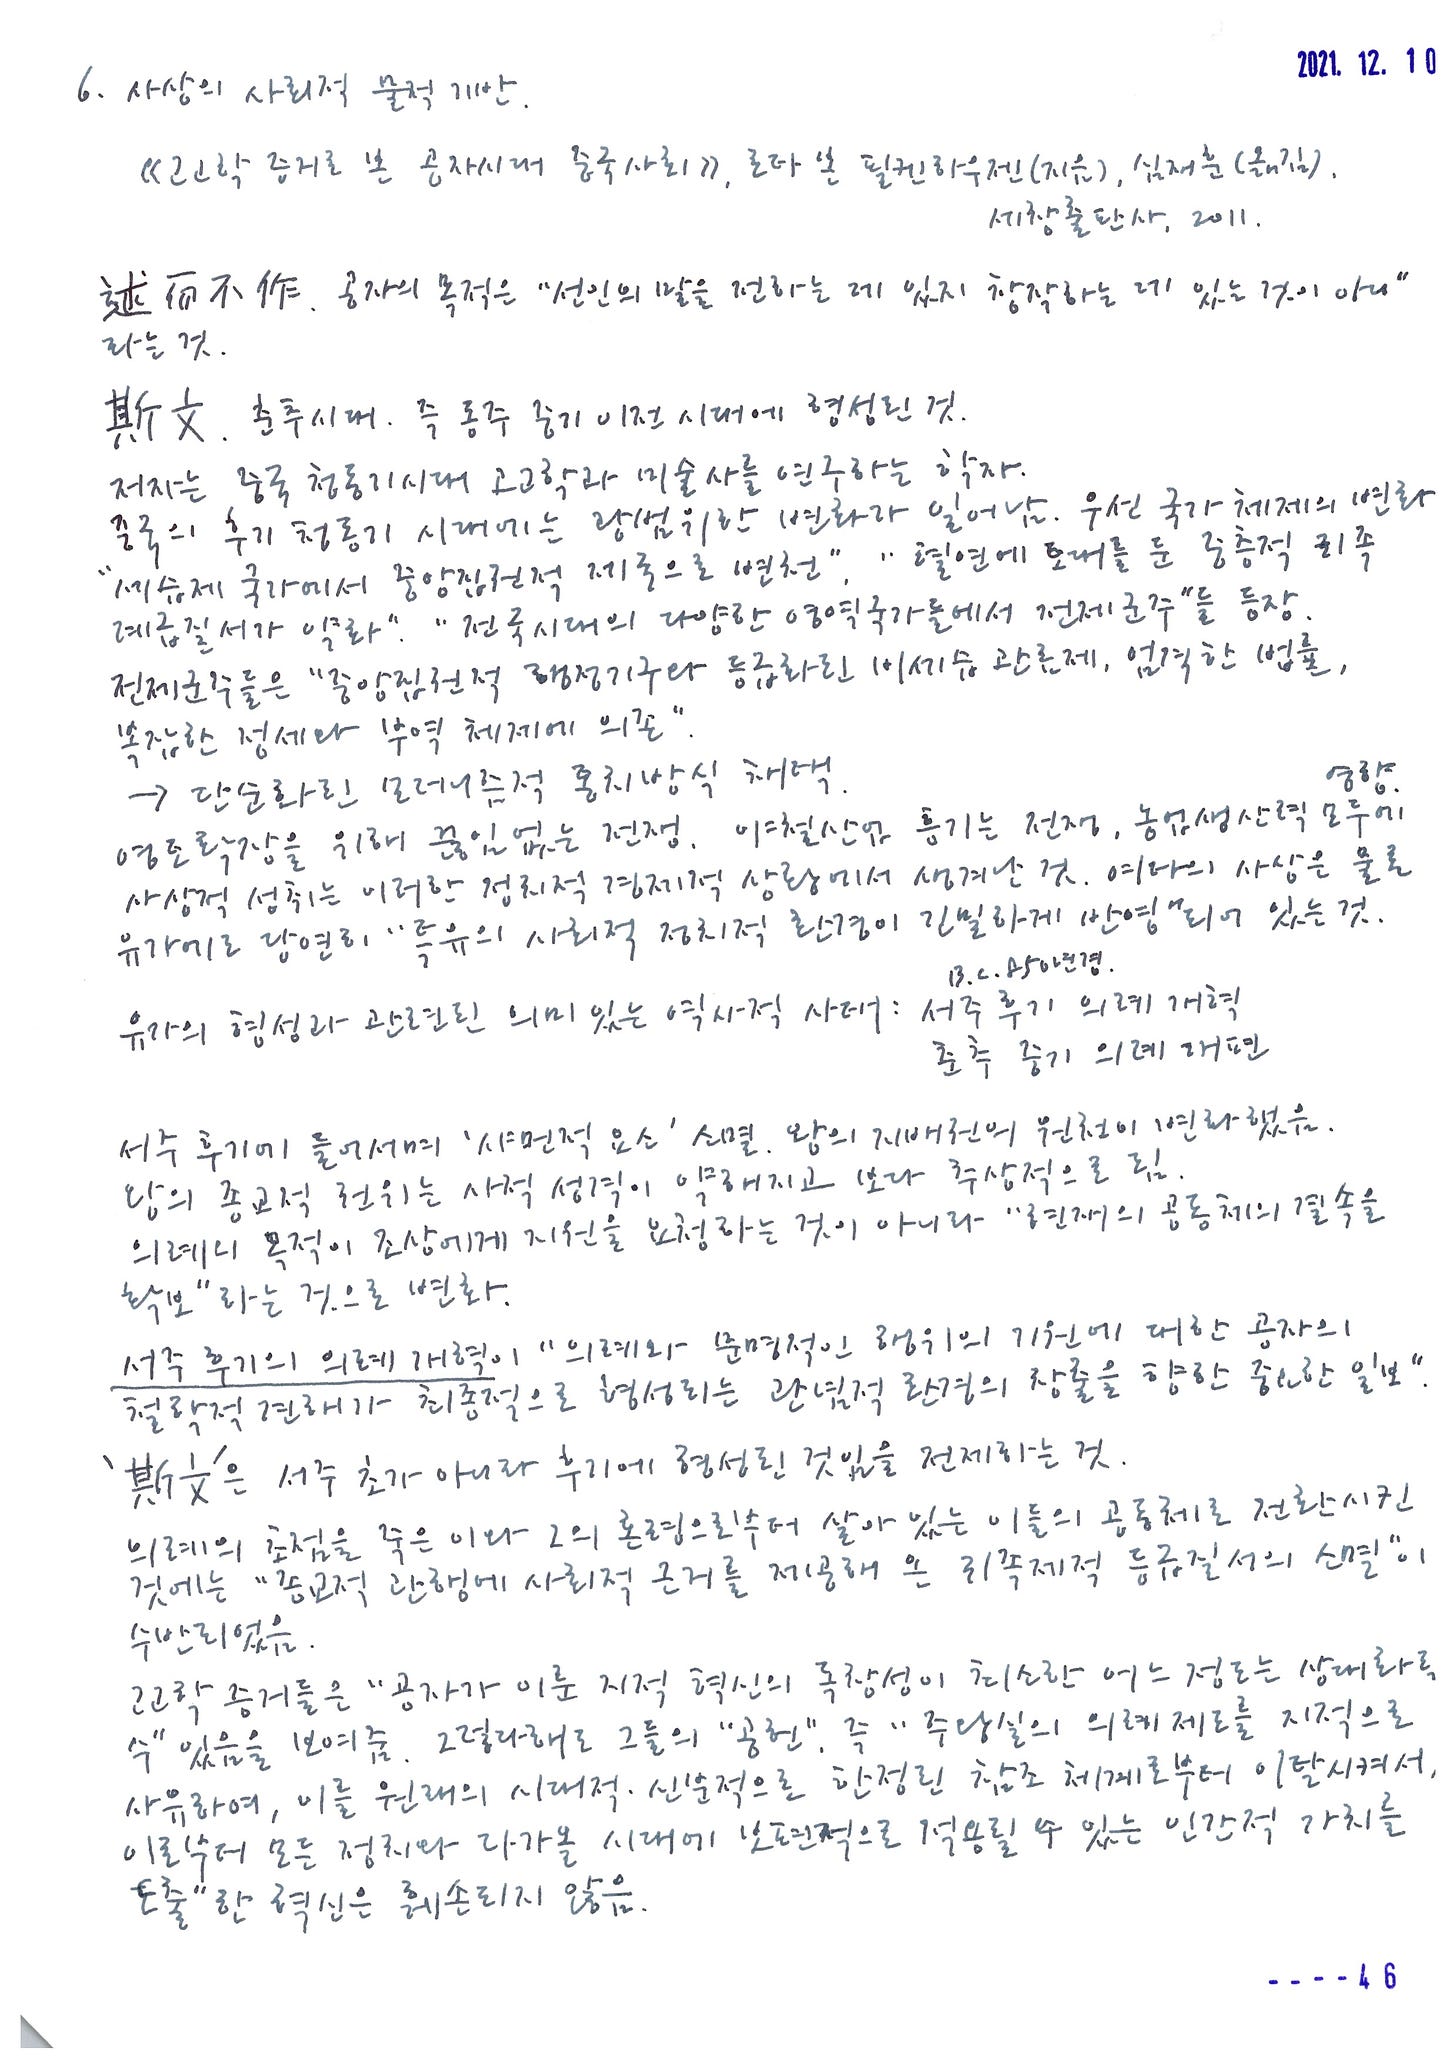 2021. 12. 10
6. 사상의 사회적 물적 기반.
《고고학 증거로 본 공자시대 중국사회》, 로타 본 팔켄하우젠(지음), 심재훈(옮김).
세창출판사, 2011.
述而不作. 공자의 목적은 "선인의 말을 전하는 데 있지 창작하는 데 있는 것이 아니"
라는 것.
斯文. 춘추시대. 즉 동주 중기 이전 시대에 형성된 것.
저자는 중국 청동기시대 고고학과 미술사를 연구하는 학자.
중국의 후기 청동기 시대에는 광범위한 변화가 일어남. 우선 국가 체제의 변화
"세습제 국가에서 중앙집권적 제국으로 변천". "혈연에 토대를 둔 중층적 귀족
계급질서가 약화". "전국시대의 다양한 영역국가들에서 전제군주"들 등장.
전제군주들은 "중앙집권적 행정기구와 등급화된 비세습 관료제, 엄격한 법률,
복잡한 징세와 부역 체제에 의존".
→ 단순화된 모더니즘적 통치방식 채택.
영향.
영토확장을 위해 끊임없는 전쟁. 야철산업 흥기는 전쟁, 농업생산력 모두에
사상적 성취는 이러한 정치적 경제적 상황에서 생겨난 것. 여타의 사상은 물론
유가에도 당연히 "특유의 사회적 정치적 환경이 긴밀하게 반영"되어 있는 것.
B.C. 850년경.
유가의 형성과 관련된 의미 있는 역사적 사태: 서주 후기 의례 개혁
춘추 중기 의례 재편
서주 후기에 들어서며 '샤먼적 요소' 소멸. 왕의 지배권의 원천이 변화했음.
왕의 종교적 권위는 사적 성격이 약해지고 보다 추상적으로 됨.
의례의 목적이 조상에게 지원을 요청하는 것이 아니라 "현재의 공동체의 결속을
확보"라는 것으로 변화.
서주 후기의 의례 개혁이 "의례와 문명적인 행위의 기원에 대한 공자의
철학적 견해가 최종적으로 형성되는 관념적 환경의 창출을 향한 중요한 일보".
'斯文'은 서주 초가 아니라 후기에 형성된 것임을 전제하는 것.
의례의 초점을 죽은 이와 그의 혼령으로부터 살아 있는 이들의 공동체로 전환시킨
것에는 "종교적 관행에 사회적 근거를 제공해 온 귀족제적 등급질서의 소멸"이
수반되었음.
고고학 증거들은 "공자가 이룬 지적 혁신의 독창성이 최소한 어느 정도는 상대화될
수" 있음을 보여줌. 그렇다해도 그들의 "공헌", 즉 "주 왕실의 의례제도를 지적으로
사유하여, 이를 원래의 시대적·신분적으로 한정된 참조 체계로부터 이탈시켜서,
이로부터 모든 정치와 다가올 시대에 보편적으로 적용될 수 있는 인간적 가치를
도출"한 혁신은 훼손되지 않음.
----46